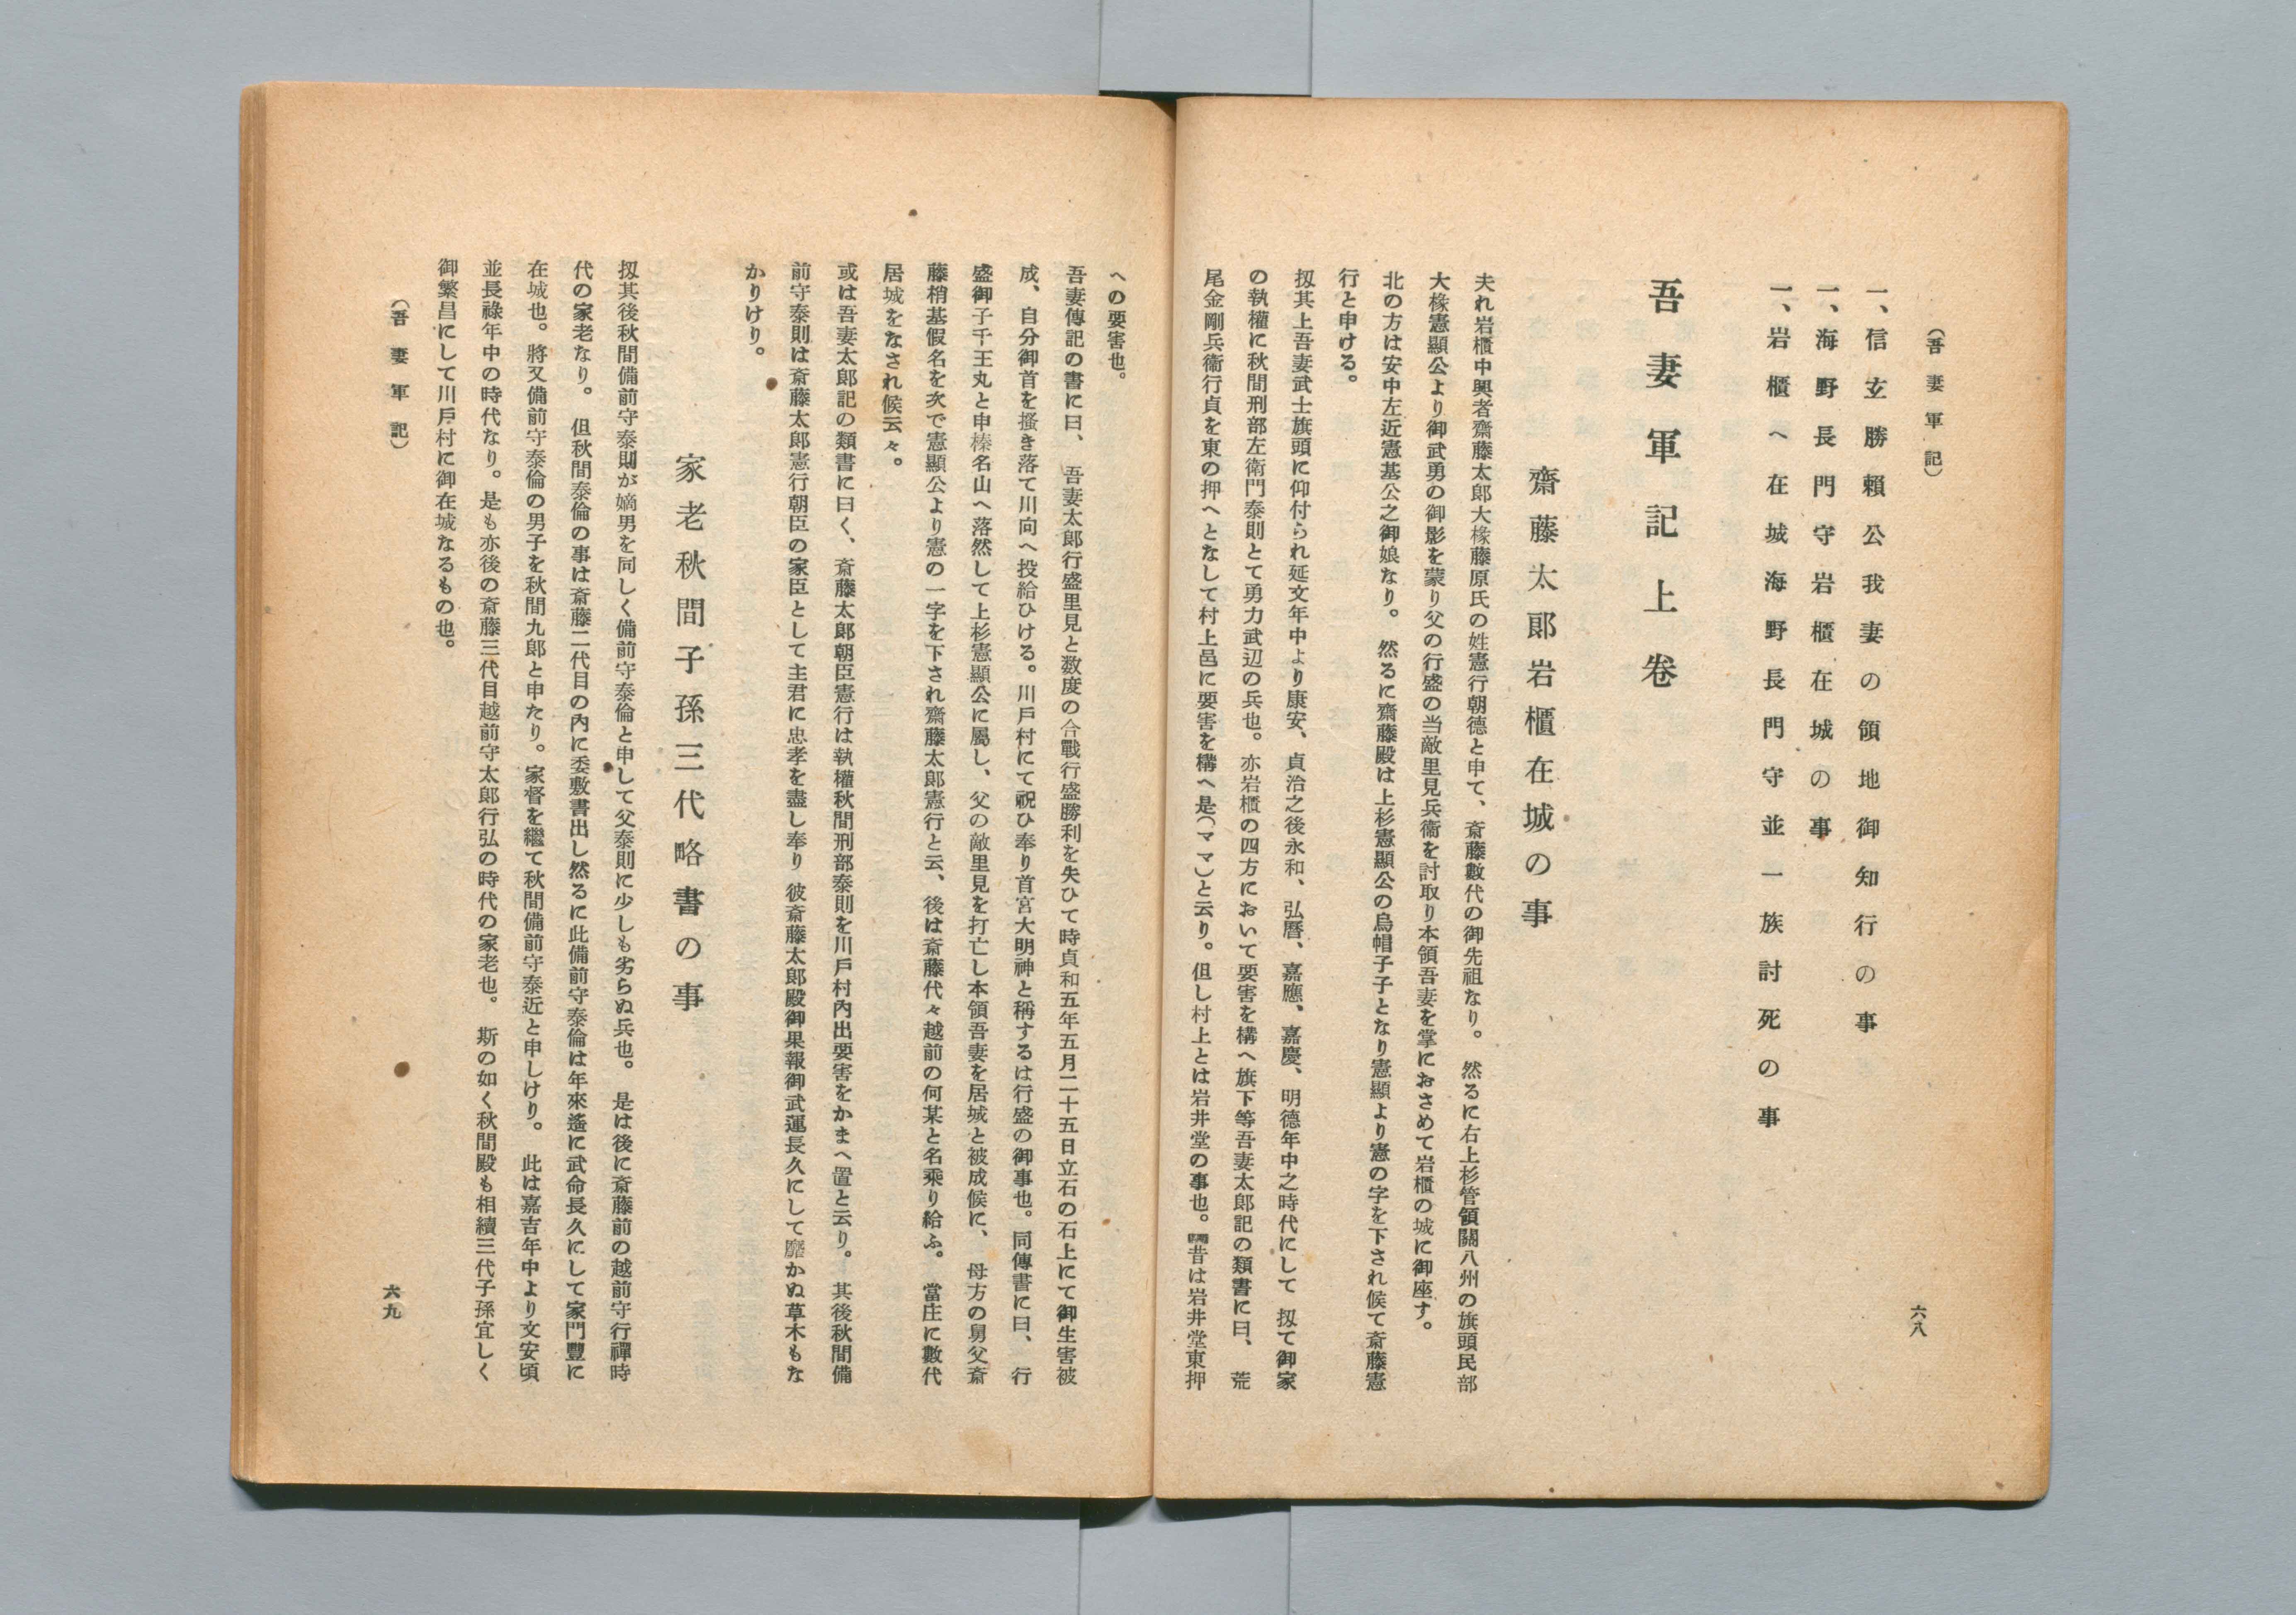 （吾妻軍記）
六八
一、信玄勝賴公我妻の領地御知行の事
一、海野長門守岩櫃在城の事
一、岩櫃へ在城海野長門守並一族討死の事
吾妻軍記上卷
齋藤太郞岩櫃在城の事
夫れ岩櫃中興者齋藤太郞大椽藤原氏の姓憲行朝德と申て、斎藤數代の御先祖なり。然るに右上杉管領關八州の旗頭民部
大椽憲顯公より御武勇の御影を蒙り父の行盛の当敵里見兵衞を討取り本領吾妻を掌におさめて岩櫃の城に御座す。
北の方は安中左近憲基公之御娘なり。然るに齋藤殿は上杉憲顯公の烏帽子子となり憲顯より憲の字を下され候て斎藤憲
行と申ける。
扨其上吾妻武士旗頭に仰付られ延文年中より康安、貞治之後永和、弘曆、嘉應、嘉慶、明德年中之時代にして扨て御家
の執權に秋間刑部左衛門泰則とて勇力武辺の兵也。亦岩櫃の四方において要害を構へ旗下等吾妻太郎記の類書に曰、荒
尾金剛兵衞行貞を東の押へとなして村上邑に要害を構へ是（ママ）と云り。但し村上とは岩井堂の事也。昔は岩井堂東押
への要害也。
吾妻傳記の書に曰、吾妻太郞行盛里見と数度の合戰行盛勝利を失ひて時貞和五年五月二十五日立石の石上にて御生害被
成、自分御首を搔き落て川向へ投給ひける。川戶村にて祝ひ奉り首宮大明神と稱するは行盛の御事也。同傳書に曰、行
盛御子千王丸と申榛名山へ落然して上杉憲顯公に屬し、父の敵里見を打亡し本領吾妻を居城と被成候に、母方の舅父斎
藤梢基假名を次で憲顯公より憲の一字を下され齋藤太郞憲行と云、後は斎藤代々越前の何某と名乘り給ふ。當庄に數代
居城をなされ候云々。
或は吾妻太郞記の類書に曰く、斎藤太郞朝臣憲行は執權秋間刑部泰則を川戶村內出要害をかまへ置と云り。其後秋間備
前守泰則は斎藤太郞憲行朝臣の家臣として主君に忠孝を盡し奉り彼斎藤太郞殿御果報御武運長久にして靡かぬ草木もな
かりけり。
家老秋間子孫三代略書の事
扨其後秋間備前守泰則が嫡男を同しく備前守泰倫と申して父泰則に少しも劣らぬ兵也。是は後に斎藤前の越前守行禪時
代の家老なり。但秋間泰倫の事は斎藤二代目の內に委敷書出し然るに此備前守泰倫は年來遙に武命長久にして家門豐に
在城也。將又備前守泰倫の男子を秋間九郞と申たり。家督を繼て秋間備前守泰近と申しけり。此は嘉吉年中より文安頃
並長祿年中の時代なり。是も亦後の斎藤三代目越前守太郞行弘の時代の家老也。斯の如く秋間殿も相續三代子孫宜しく
御繁昌にして川戶村に御在城なるもの也。
（吾妻軍記）
六九